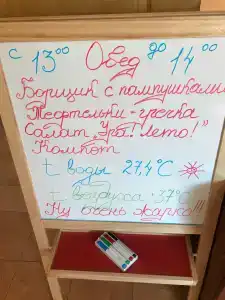 с 13⁰⁰ Обед до 14⁰⁰
Борщик с пампушками
Тефтельки - гречка
Салат "Ура! Лето!"
Компот
t воды 27,4°C
t воздуха 37°C
Ну очень жарко!!!